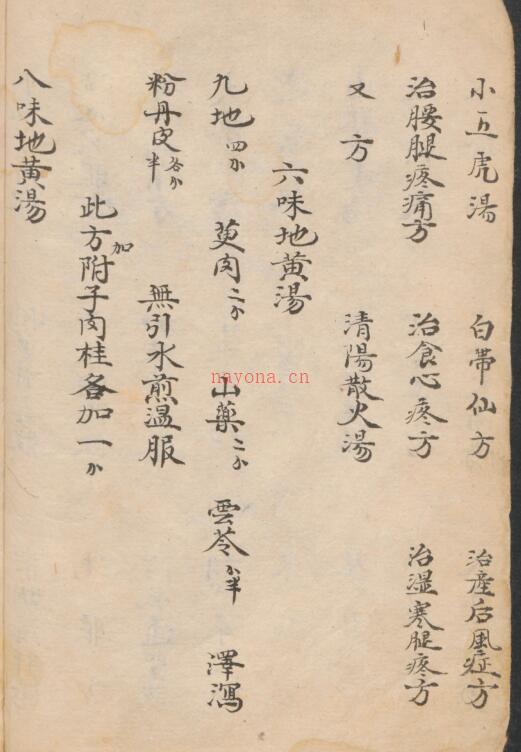 小五虎湯 白帯仙方 治産后風症方
治腰腿疼痛方 治食心疼方 治湿寒腿疼方
又方 清陽散火湯
六味地黄湯
九地四分 萸肉二分 山藥二分 雲苓分半 澤瀉
粉丹皮各分半 無引水煎温服
此方加附子肉桂各加一分
八味地黄湯
nayona.cn